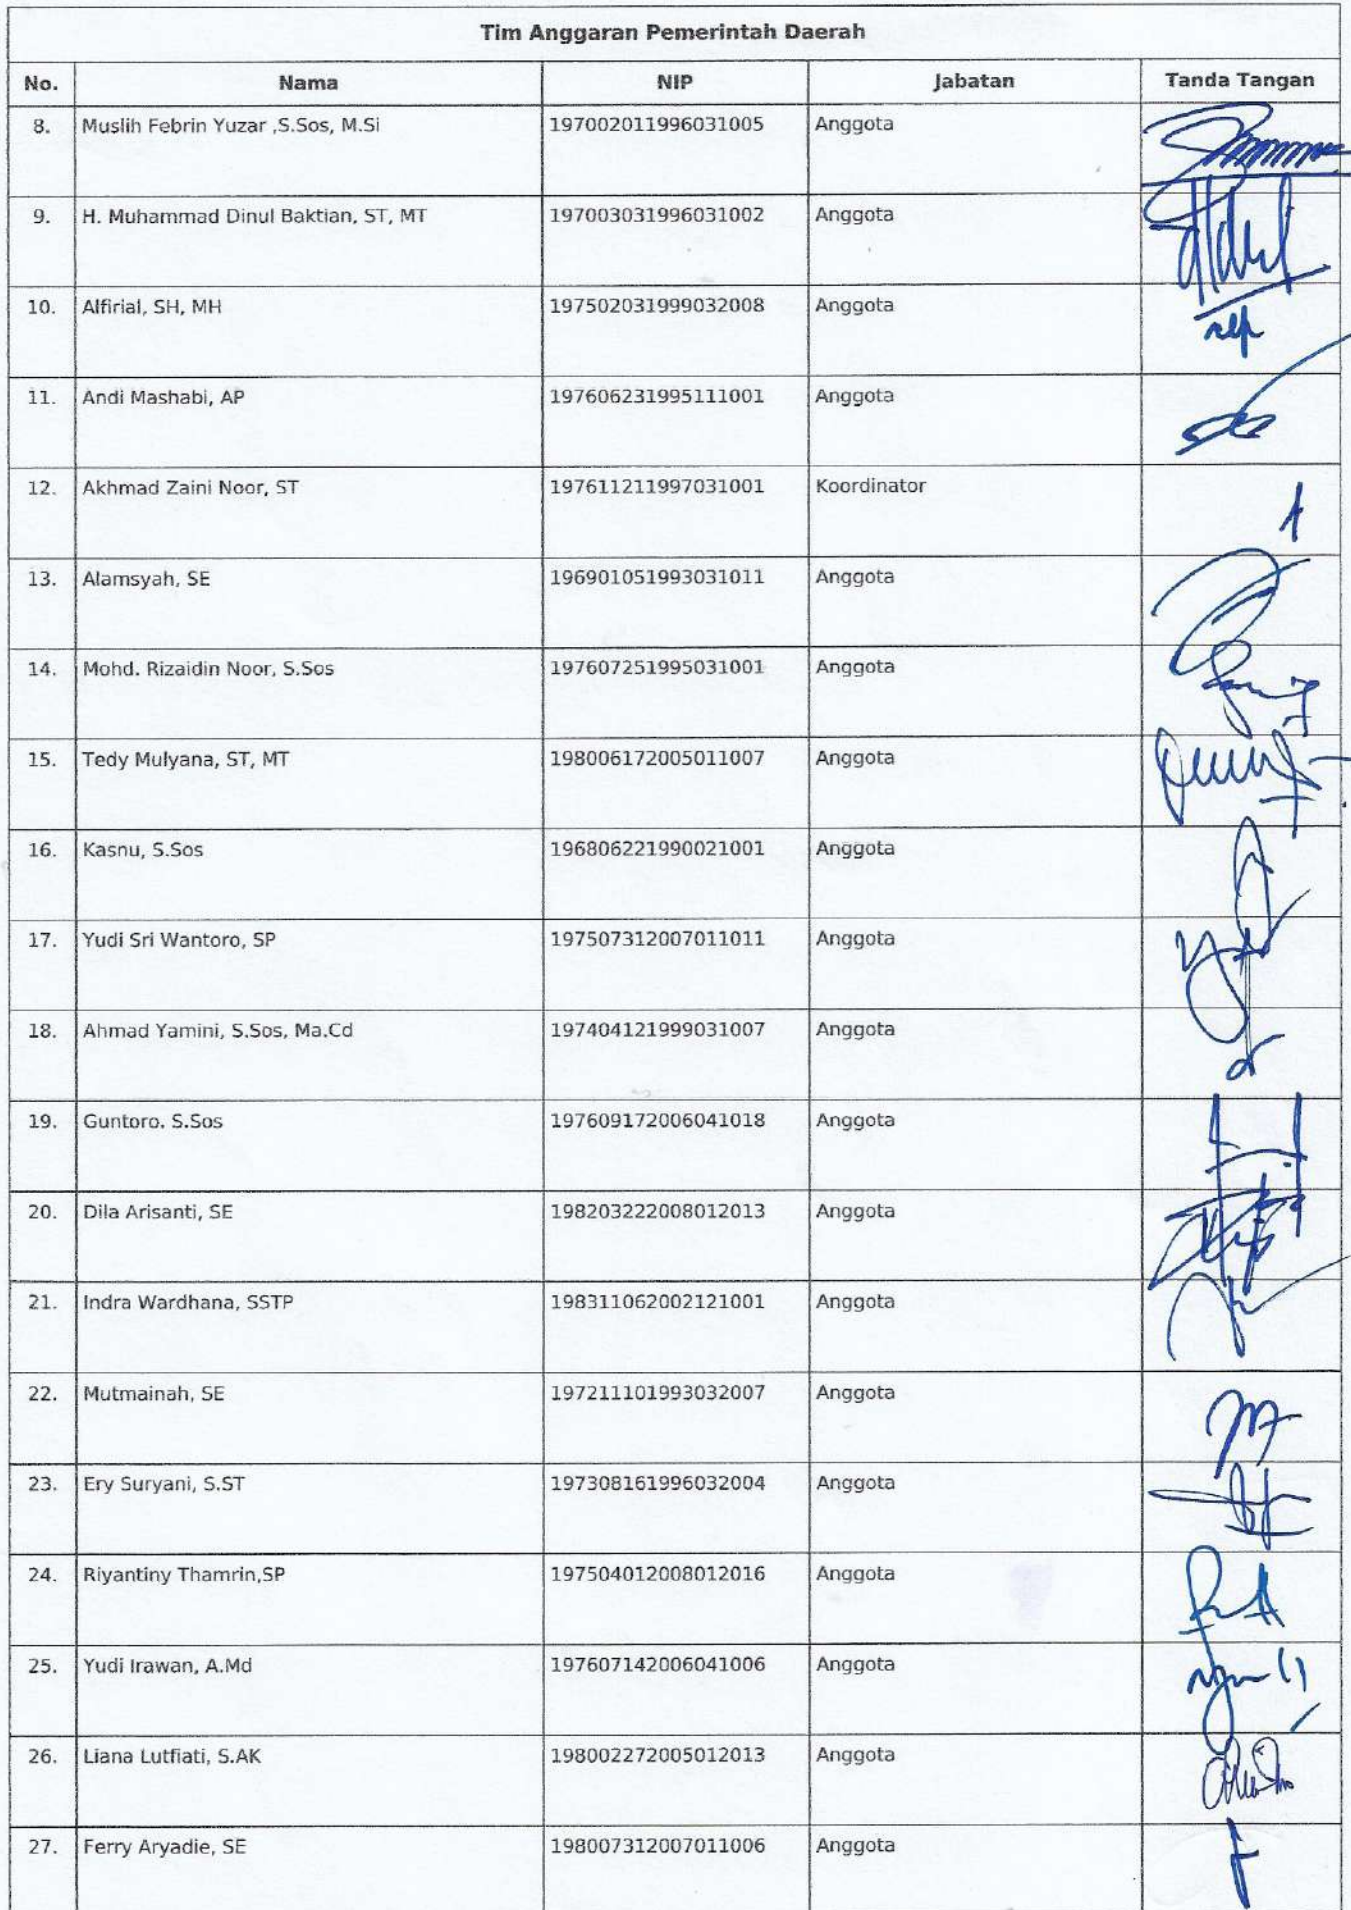 Tim Anggaran Pemerintah Daerah
No. Nama NIP Jabatan Tanda Tangan
8. Muslih Febrin Yuzar ,S.Sos, M.Si 197002011996031005 Anggota
9. H. Muhammad Dinul Baktian, ST, MT 197003031996031002 Anggota
10. Alfirial, SH, MH 197502031999032008 Anggota
11. Andi Mashabi, AP 197606231995111001 Anggota
12. Akhmad Zaini Noor, ST 197611211997031001 Koordinator
13. Alamsyah, SE 196901051993031011 Anggota
14. Mohd. Rizaidin Noor, S.Sos 197607251995031001 Anggota
15. Tedy Mulyana, ST, MT 198006172005011007 Anggota
16. Kasnu, S.Sos 196806221990021001 Anggota
17. Yudi Sri Wantoro, SP 197507312007011011 Anggota
18. Ahmad Yamini, S.Sos, Ma.Cd 197404121999031007 Anggota
19. Guntoro. S.Sos 197609172006041018 Anggota
20. Dila Arisanti, SE 198203222008012013 Anggota
21. Indra Wardhana, SSTP 198311062002121001 Anggota
22. Mutmainah, SE 197211101993032007 Anggota
23. Ery Suryani, S.ST 197308161996032004 Anggota
24. Riyantiny Thamrin,SP 197504012008012016 Anggota
25. Yudi Irawan, A.Md 197607142006041006 Anggota
26. Liana Lutfiati, S.AK 198002272005012013 Anggota
27. Ferry Aryadie, SE 198007312007011006 Anggota